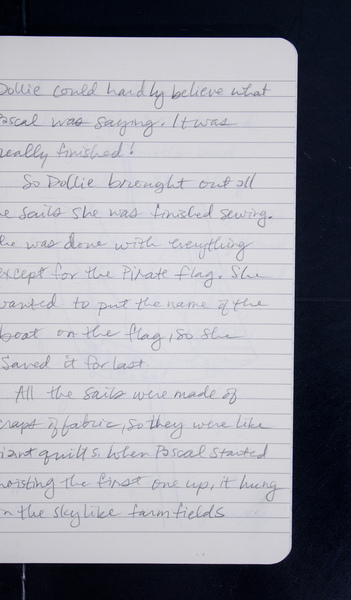 Dollie could hardly believe what
Pascal was saying. It was
really finished!
So Dollie brought out all
he sails she was finished sewing.
he was done with everything
except for the Pirate flag. She
wanted to put the name of the
boat on the flag, so she
saved it for last.
All the sails were made of
craps of fabric, so they were like
iant quilts. When Pascal started
hoisting the first one up, it hung
in the sky like farm fields